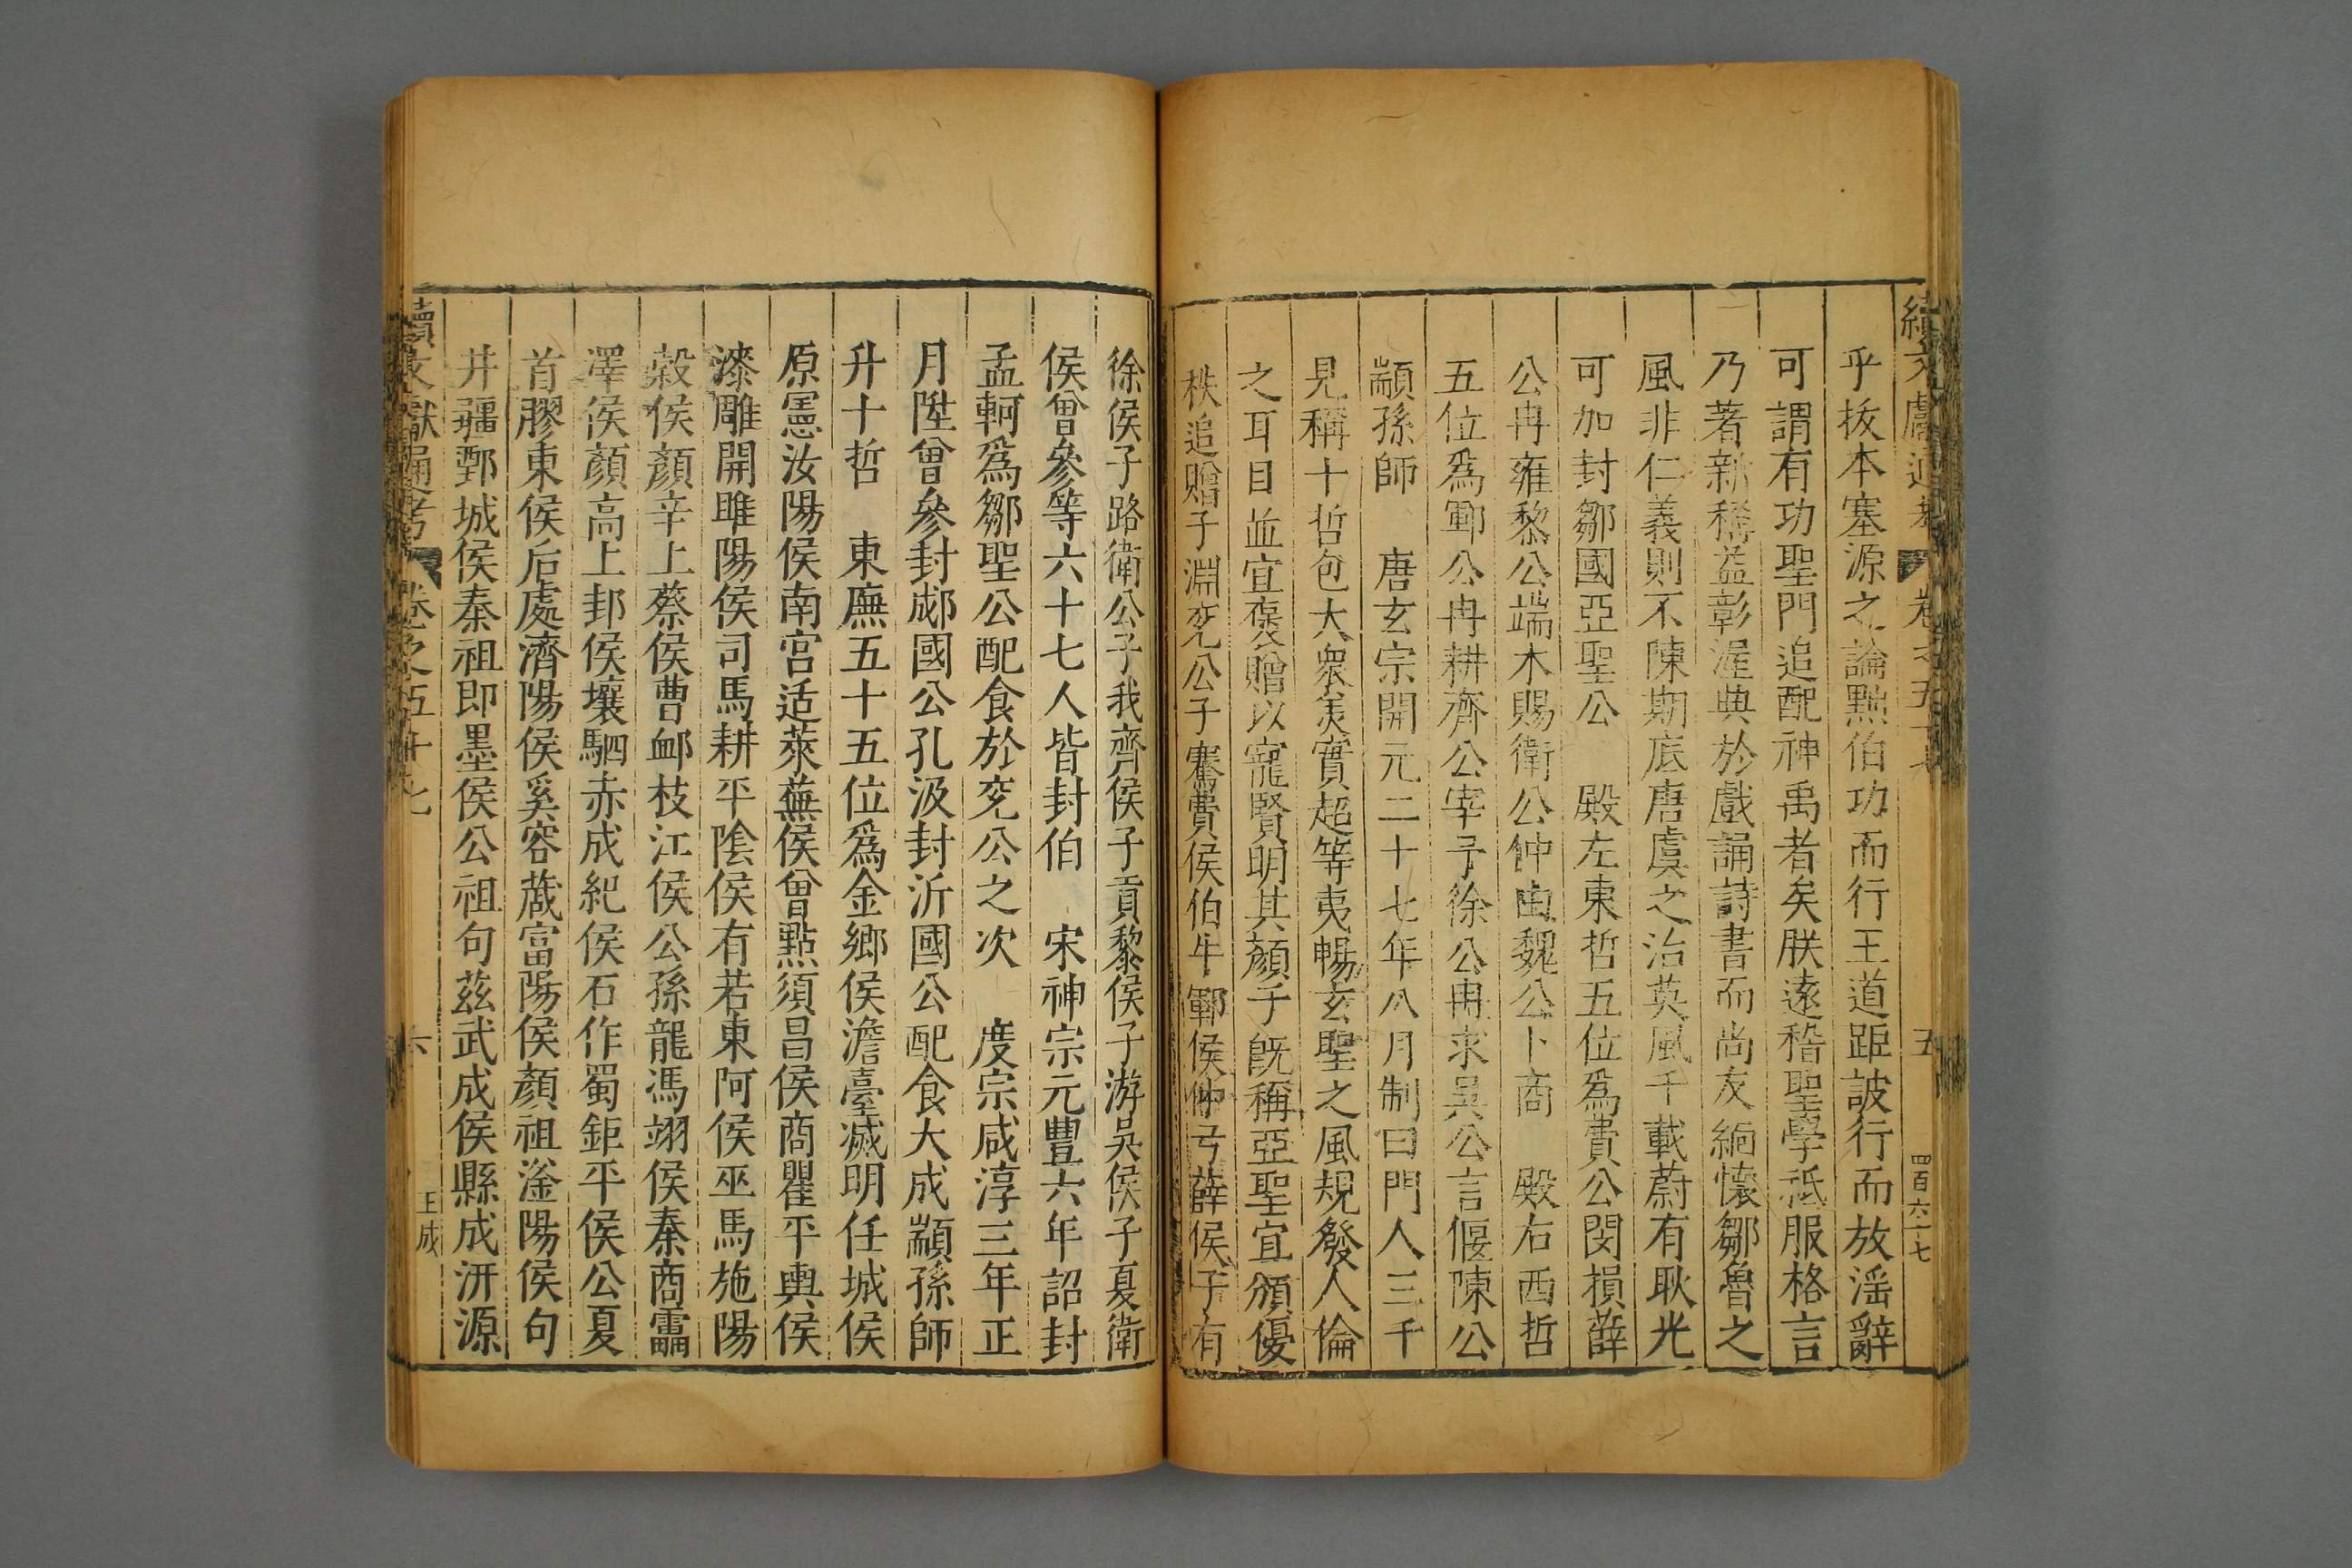 續文獻通考 卷之五十七 五 四百六十七
乎拔本塞源之論黜伯功而行王道距詖行而放滛辭
可謂有功聖門追配神禹者矣朕逺稽聖學祇服格言
乃著新稱益彰渥典於戲誦詩書而尚友緬懷鄒魯之
風非仁義則不陳期底唐虞之治英風千載蔚有耿光
可加封鄒國亞聖公 殿左東哲五位爲費公閔損薛
公冉雍黎公端木賜衛公仲由魏公卜商 殿右西哲
五位爲鄆公冉耕齊公宰予徐公冉求吳公言偃陳公
顓孫師 唐玄宗開元二十七年八月制曰門人三千
見稱十哲包大衆美實超等夷暢玄聖之風規發人倫
之耳目並宜襃贈以寵賢明其顏子旣稱亞聖宜頒優
秩追贈子淵兖公子騫費侯伯牛鄆侯仲弓薛侯子有
徐侯子路衛公子我齊侯子貢黎侯子游吳侯子夏衛
侯曾參等六十七人皆封伯 宋神宗元豐六年詔封
孟軻爲鄒聖公配食於兖公之次 度宗咸淳三年正
月陞曾參封郕國公孔汲封沂國公配食大成顓孫師
升十哲 東廡五十五位爲金鄉侯澹臺滅明任城侯
原憲汝陽侯南宫适萊蕪侯曾點須昌侯商瞿平輿侯
漆雕開睢陽侯司馬耕平陰侯有若東阿侯巫馬施陽
榖侯顏辛上蔡侯曹䘏枝江侯公孫龍馮翊侯秦商靁
澤侯顏高上邽侯壤駟赤成紀侯石作蜀鉅平侯公夏
首膠東侯后處濟陽侯奚容蒧富陽侯顏祖滏陽侯句
井疆鄄城侯秦祖即墨侯公祖句兹武成侯縣成汧源
續文獻通考 卷之五十七 六 王成